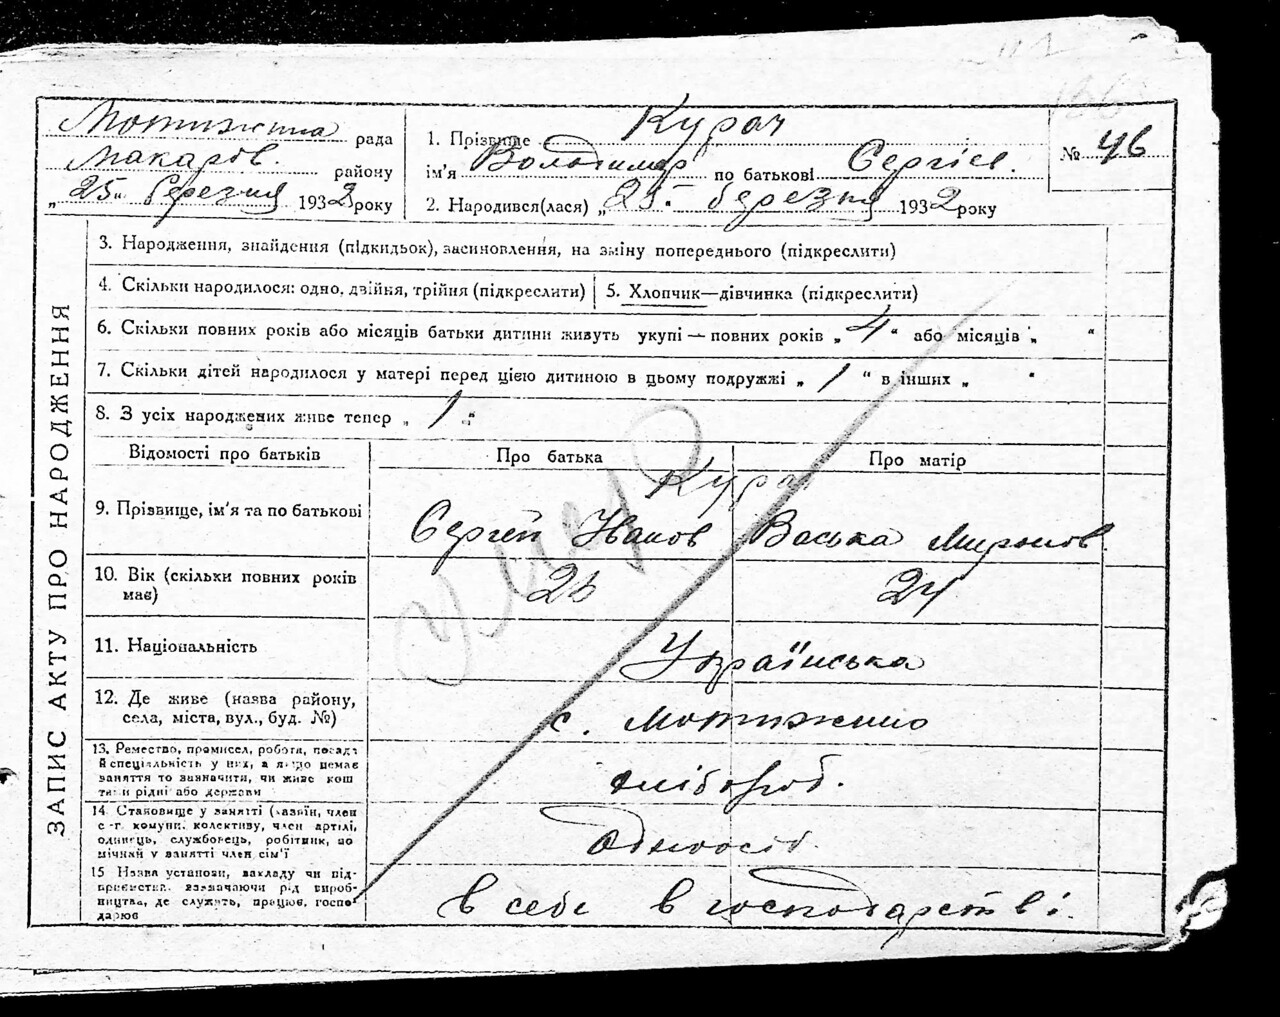 Мотижина рада
Макарів. району
„25" березня 1932 року
1. Прізвище Курач
ім'я Володимир по батькові Сергієв.
2. Народився(лася) „25" березня 1932 року
№ 46
ЗАПИС АКТУ ПРО НАРОДЖЕННЯ
3. Народження, знайдення (підкидьок), засиновлення, на зміну попереднього (підкреслити)
4. Скільки народилося: одно, двійня, трійня (підкреслити)
5. Хлопчик—дівчинка (підкреслити)
6. Скільки повних років або місяців батьки дитини живуть укупі — повних років „4" або місяців „ "
7. Скільки дітей народилося у матері перед цією дитиною в цьому подружжі „1" в інших „ "
8. З усіх народжених живе тепер „1"
Відомості про батьків
Про батька
Про матір
9. Прізвище, ім'я та по батькові
Курач
Сергей Иванов
Васька Миронов.
10. Вік (скільки повних років має)
24
11. Національність
Українська
12. Де живе (назва району,
села, міста, вул., буд. №)
с. Мотижино
13. Ремество, промисел, робота, посада
й спеціяльність у них, а якщо немає
заняття то зазначити, чи живе кош
тами рідні або держави
хлібороб.
14. Становище у занятті (хазяїн, член
с.-г. комуни, колективу, член артілі,
одинець, службовець, робітник, по
мічний у занятті член сім'ї
Одноосіб.
15 Назва установи, закладу чи під-
приємства, зазначаючи рід вироб-
ництва, де служить, працює, госпо-
дарює
в себе в господарстві.
умер